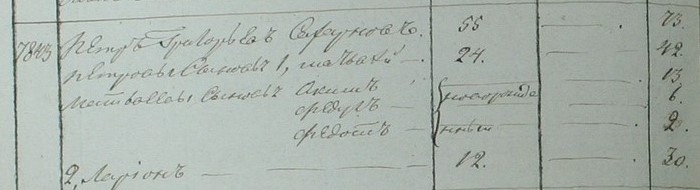 7843 Петръ Григорьевъ Сафроновъ. 55 — . 73.
Петровы Сыновья 1, Матвей — . 24. — . 42.
Матвеевы Сыновья Акимъ — новорожде — . 13.
Федулъ — — . 6.
Федотъ — нные — . 2.
2, Ларіонъ — — — 12. — . 30.